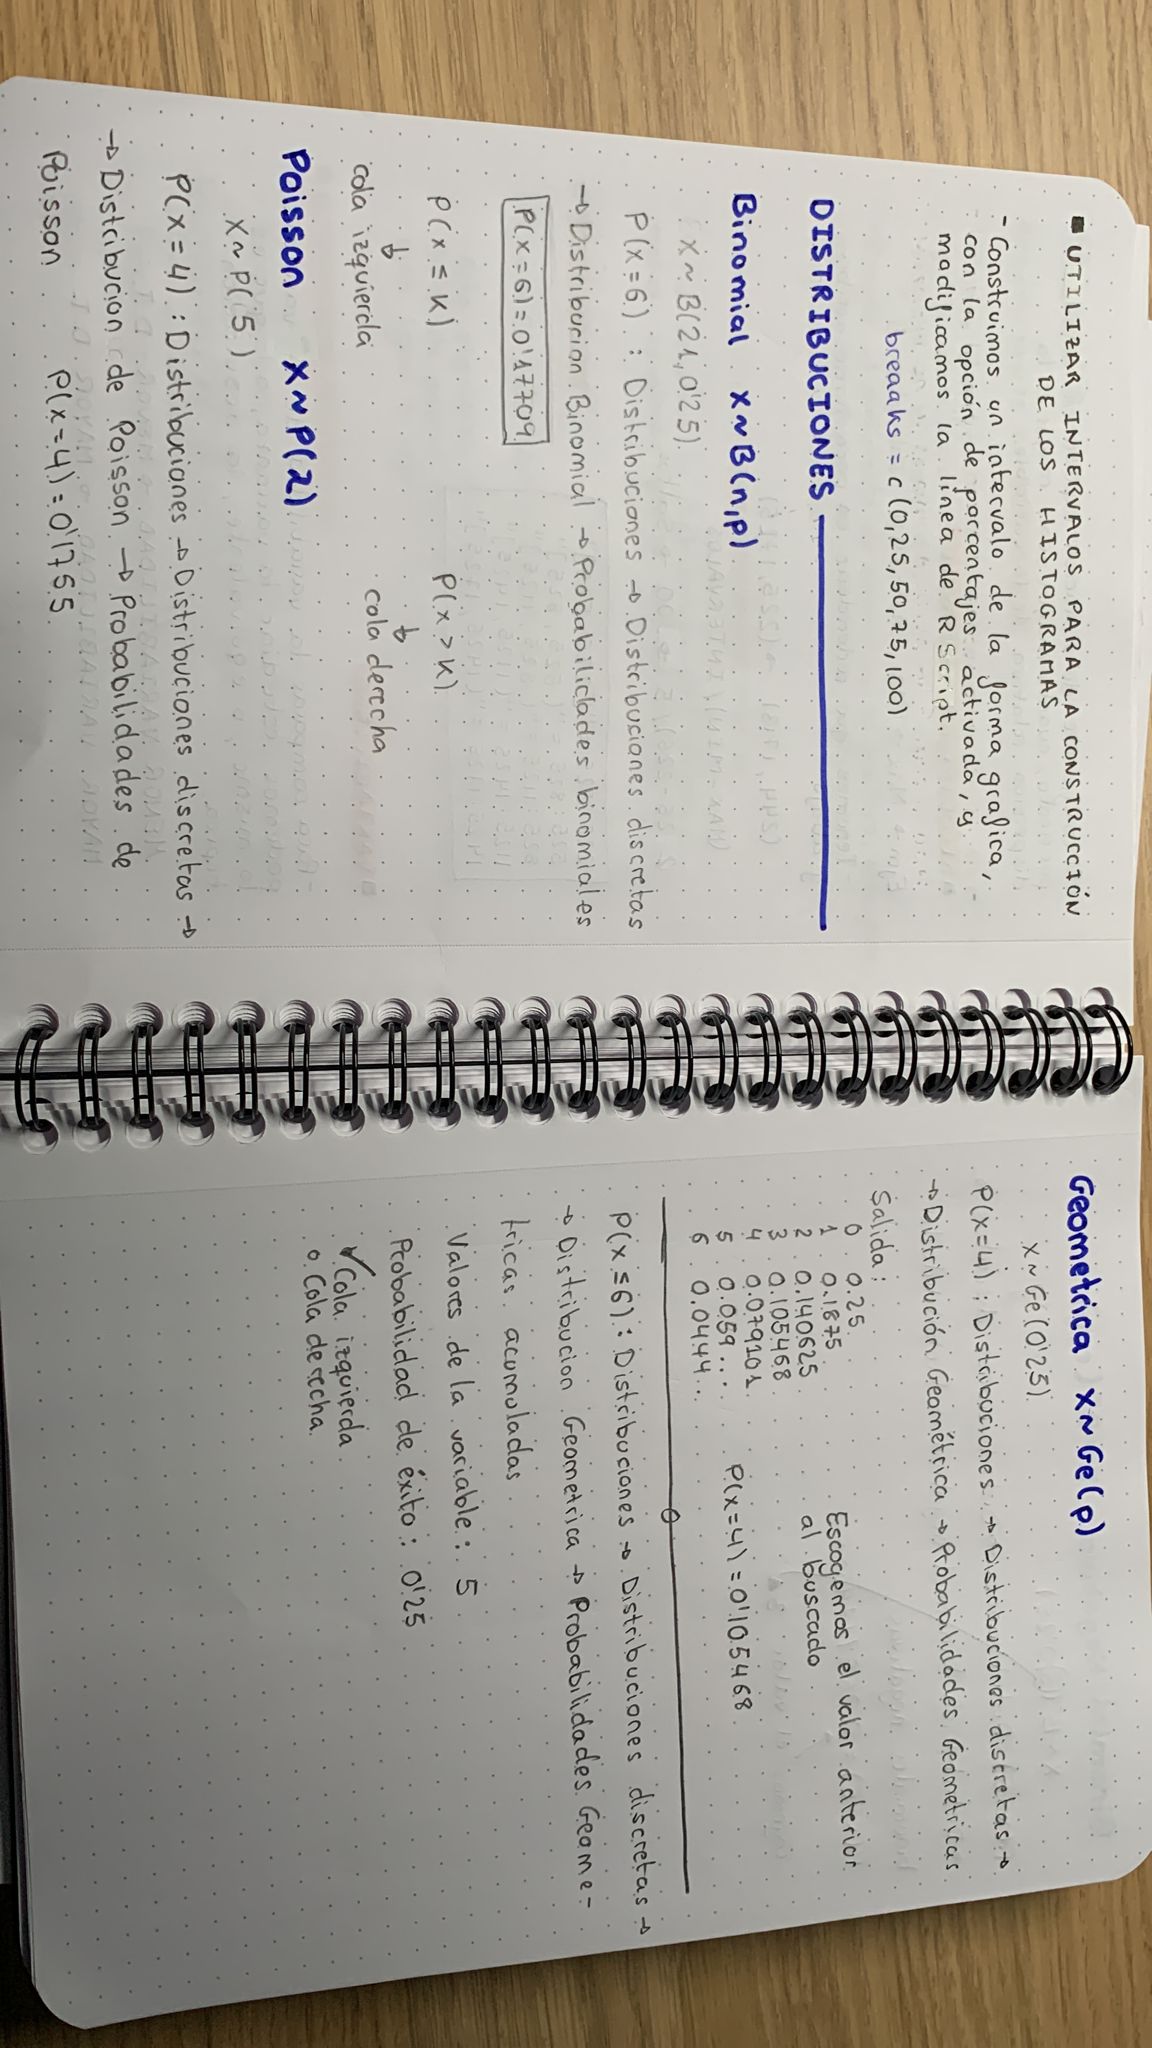 ▪ UTILIZAR INTERVALOS PARA LA CONSTRUCCIÓN
DE LOS HISTOGRAMAS
- Construimos un intervalo de la forma grafica,
con la opción de porcentajes activada, y
modificamos la línea de R Script.
breaaks = c (0,25,50,75,100)
DISTRIBUCIONES
Binomial X~B(n,p)
X~B(21,0'25)
P(X=6) : Distribuciones → Distribuciones discretas
→ Distribucion Binomial → Probabilidades binomiales
P(X=6)=0'17709
P(X ≤ K) P(X > K)
↓ ↓
cola izquierda cola derecha
Poisson X~P(λ)
X~P(5)
P(X=4) : Distribuciones → Distribuciones discretas →
→ Distribucion de Poisson → Probabilidades de
Poisson P(X=4)=0'1755
Geometrica X~Ge(p)
X~Ge(0'25)
P(X=4) : Distribuciones → Distribuciones discretas →
→ Distribución Geométrica → Probabilidades Geometricas
Salida:
0 0.25
1 0.1875
2 0.140625
3 0.105468
4 0.079101
5 0.059...
6 0.0444..
Escogemos el valor anterior
al buscado
P(X=4)=0'105468
P(X ≤6) : Distribuciones → Distribuciones discretas →
→ Distribucion Geometrica → Probabilidades Geome-
tricas acumuladas
Valores de la variable : 5
Probabilidad de éxito : 0'25
✓ Cola izquierda
o Cola derecha